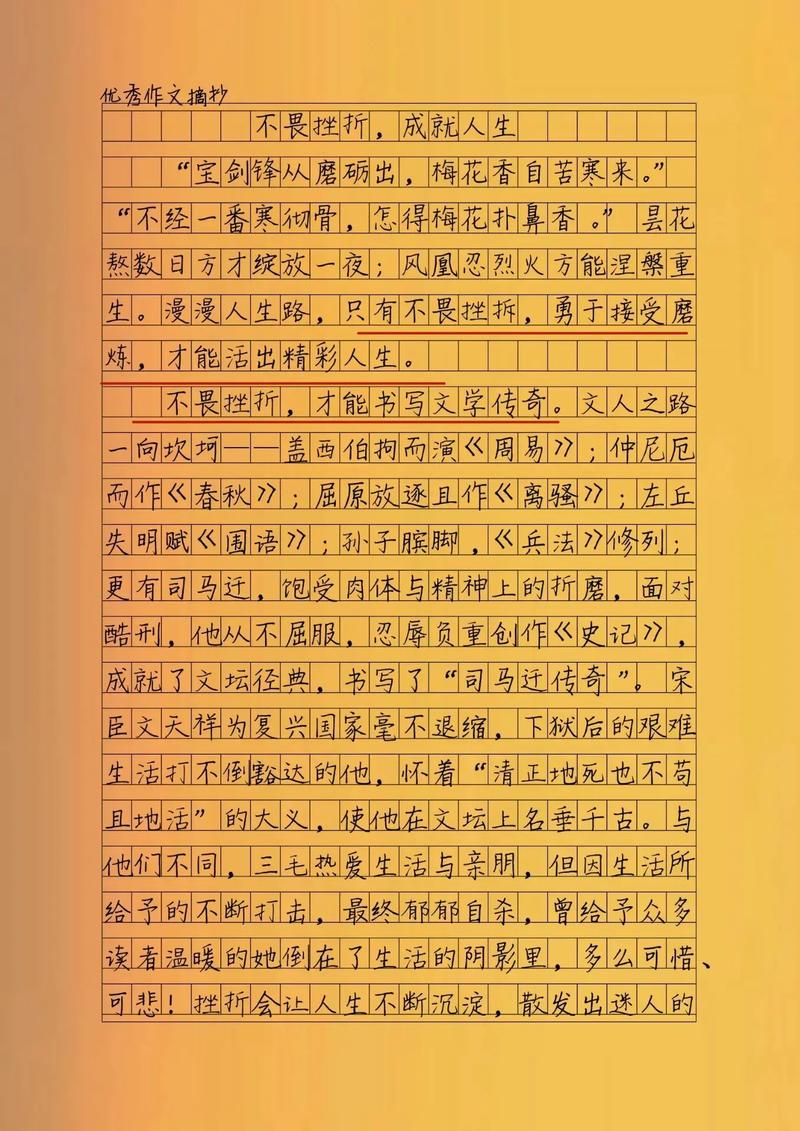 优秀作文摘抄
不畏挫折，成就人生
“宝剑锋从磨砺出，梅花香自苦寒来。”
“不经一番寒彻骨，怎得梅花扑鼻香。”昙花
熬数日方才绽放一夜；凤凰忍烈火方能涅槃重
生。漫漫人生路，只有不畏挫折，勇于接受磨
炼，才能活出精彩人生。
不畏挫折，才能书写文学传奇。文人之路
一向坎坷——盖西伯拘而演《周易》；仲尼厄
而作《春秋》；屈原放逐且作《离骚》；左丘
失明赋《国语》；孙子膑脚，《兵法》修列；
更有司马迁，饱受肉体与精神上的折磨，面对
酷刑，他从不屈服，忍辱负重创作《史记》，
成就了文坛经典，书写了“司马迁传奇”。宋
臣文天祥为复兴国家毫不退缩，下狱后的艰难
生活打不倒豁达的他，怀着“清正地死也不苟
且地活”的大义，使他在文坛上名垂千古。与
他们不同，三毛热爱生活与亲朋，但因生活所
给予的不断打击，最终郁郁自杀，曾给予众多
读者温暖的她倒在了生活的阴影里，多么可惜、
可悲！挫折会让人生不断沉淀，散发出迷人的